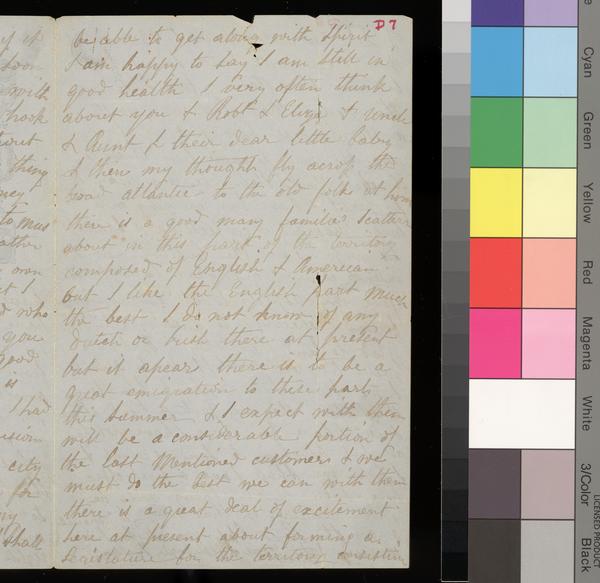 D7
be able to get along with spirit
I am happy to say I am still in
good health I very often think
about you & Robt & Eliza & uncle
& Aunt & their dear little baby
& then my thoughts fly across the
broad atlantic to the old folks at home
there is a good many families scatter
about in this part of the territory
composed of English & American
but I like the English part much
the best I do not know of any
dutch or Irish there at present
but it apears there is to be a
great emigration to these parts
this summer & I expect with them
will be a considerable portion of
the last Mentioned customers & we
must do the best we can with them
there is a great deal of excitement
here at present about forming a
Legislature for the territory consistin
of it
soon
with
hook
thing
to mus
own
I
who
you
good
is
I had
city
for
my
shall
Cyan
Green
Yellow
Red
Magenta
White
3/Color
Black
LICENSED PRODUCT